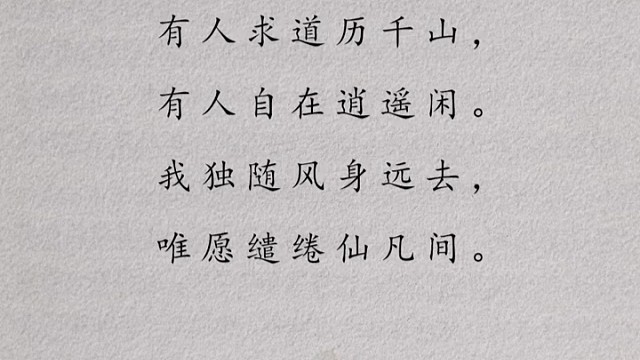 有人求道历千山，
有人自在逍遥闲。
我独随风身远去，
唯愿缱绻仙凡间。